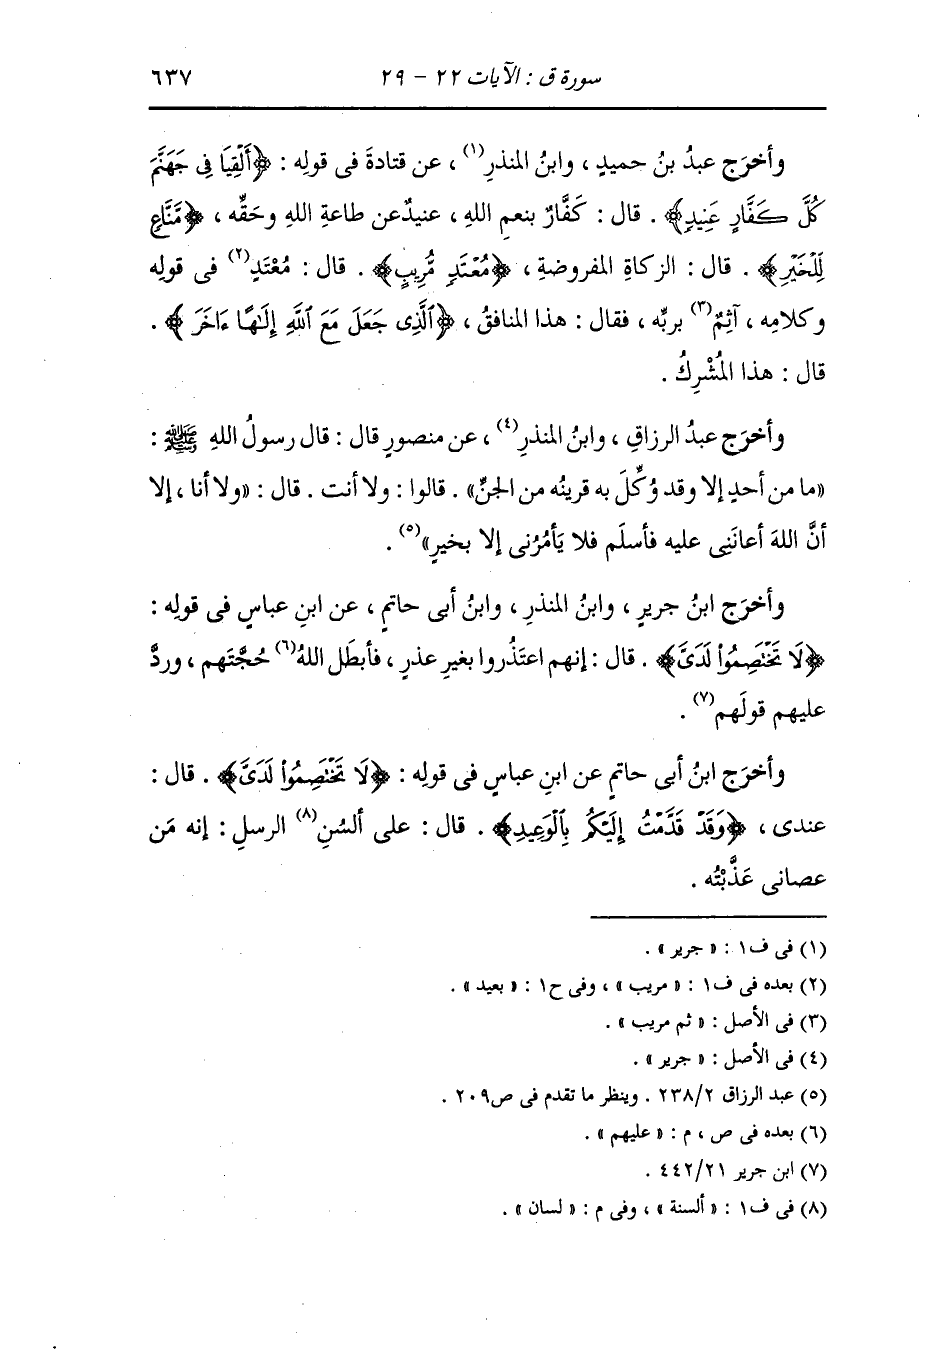 سورة ق : الآيات ٢٢ - ٢٩ ٦٣٧
وأخرَج عبدُ بنُ حميدٍ ، وابنُ المنذرِ(١) ، عن قتادةَ فى قولِه : ﴿أَلْقِيَا فِى جَهَنَّمَ
كُلَّ كَفَّارٍ عَنِيدٍ﴾ . قال : كَفَّارٌ بنعمِ اللهِ ، عنيدٌ عن طاعةِ اللهِ وحَقِّه ، ﴿مَّنَّاعٍ
لِّلْخَيْرِ﴾ . قال : الزكاةِ المفروضةِ ، ﴿مُعْتَدٍ مُّرِيبٍ﴾ . قال : مُعْتَدٍ(٢) فى قولِه
وكلامِه ، آثِمٌ(٣) بربِّه ، فقال : هذا المنافقُ ، ﴿ٱلَّذِى جَعَلَ مَعَ ٱللَّهِ إِلَٰهًا ءَاخَرَ﴾ .
قال : هذا المُشْرِكُ .
وأخرَج عبدُ الرزاقِ ، وابنُ المنذرِ(٤) ، عن منصورٍ قال : قال رسولُ اللهِ ﷺ :
«ما من أحدٍ إلا وقد وُكِّلَ به قرينُه من الجنِّ» . قالوا : ولا أنت . قال : «ولا أنا ، إلا
أنَّ اللهَ أعانَنِى عليه فأسلَم فلا يَأمُرُنى إلا بخيرٍ»(٥) .
وأخرَج ابنُ جريرٍ ، وابنُ المنذرِ ، وابنُ أبى حاتمٍ ، عن ابنِ عباسٍ فى قولِه :
﴿لَا تَخْتَصِمُوا۟ لَدَىَّ﴾ . قال : إنهم اعتَذُروا بغيرِ عذرٍ ، فأبطَل اللهُ(٦) حُجَّتَهم ، وردَّ
عليهم قولَهم(٧) .
وأخرَج ابنُ أبى حاتمٍ عن ابنِ عباسٍ فى قولِه : ﴿لَا تَخْتَصِمُوا۟ لَدَىَّ﴾ . قال :
عندى ، ﴿وَقَدْ قَدَّمْتُ إِلَيْكُم بِٱلْوَعِيدِ﴾ . قال : على ألسُنِ(٨) الرسلِ : إنه مَن
عصانى عَذَّبْتُه .
(١) فى ف١ : « جرير » .
(٢) بعده فى ف١ : « مريب » ، وفى ح١ : « بعيد » .
(٣) فى الأصل : « ثم مريب » .
(٤) فى الأصل : « جرير » .
(٥) عبد الرزاق ٢٣٨/٢ . وينظر ما تقدم فى ص٢٠٩ .
(٦) بعده فى ص ، م : « عليهم » .
(٧) ابن جرير ٤٤٢/٢١ .
(٨) فى ف١ : « ألسنة » ، وفى م : « لسان » .